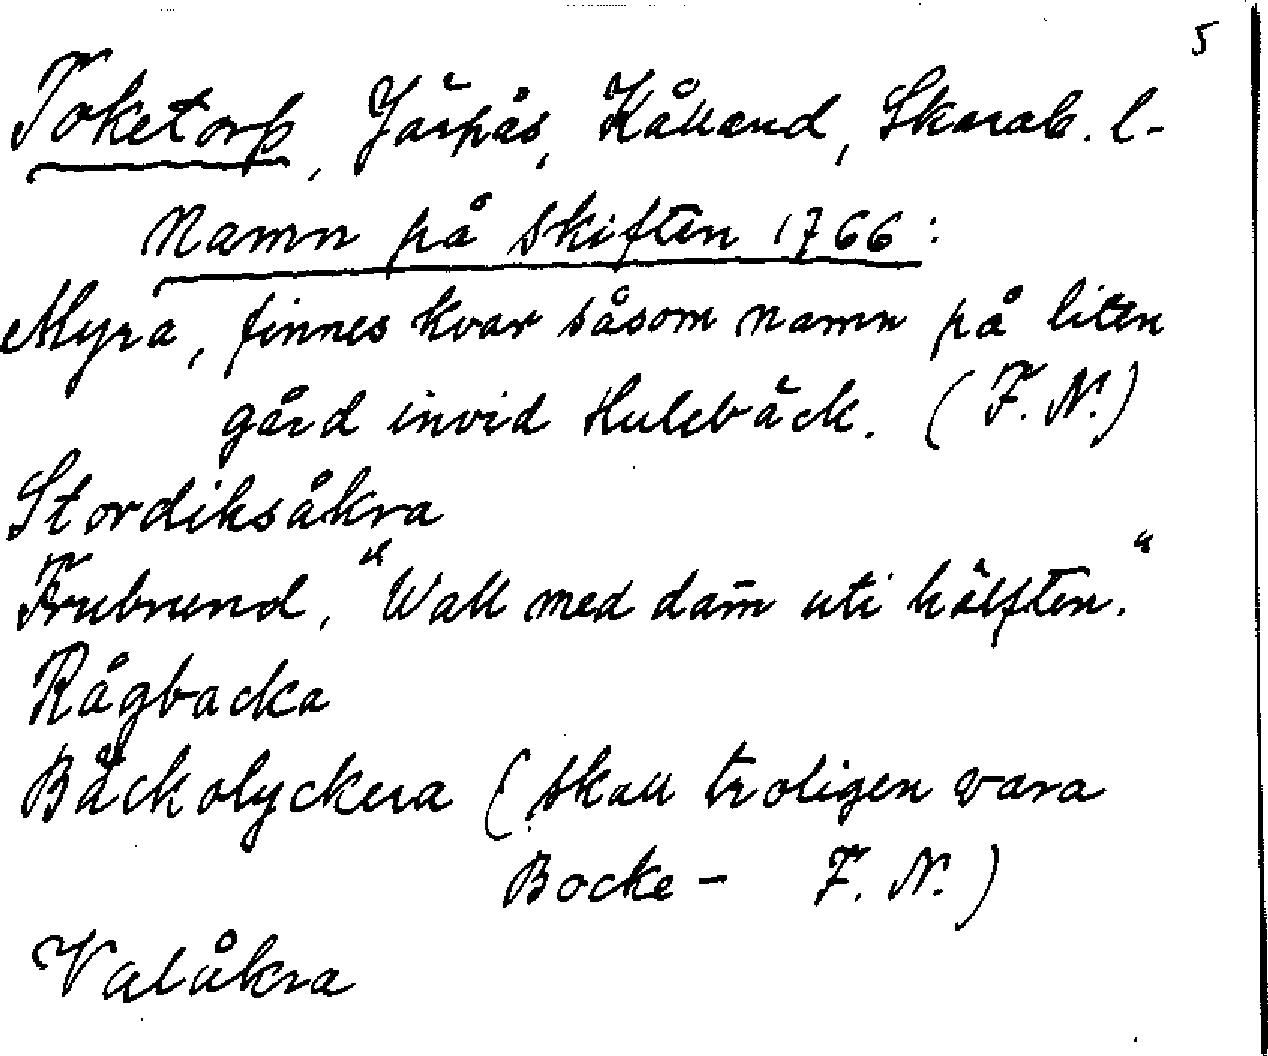 5
Toketorp, Järpås, Kålland, Skarab. l-
Namn på skiften 1766:
Myra, finnes kvar såsom namn på liten
gård invid Hulebäck. (F. N.)
Stordiksåkra
Frubrund, "Wall med dam̄ uti hälften."
Rågbacka
Bäckolyckera (skall troligen vara
Bocke- F. N.)
Valåkra